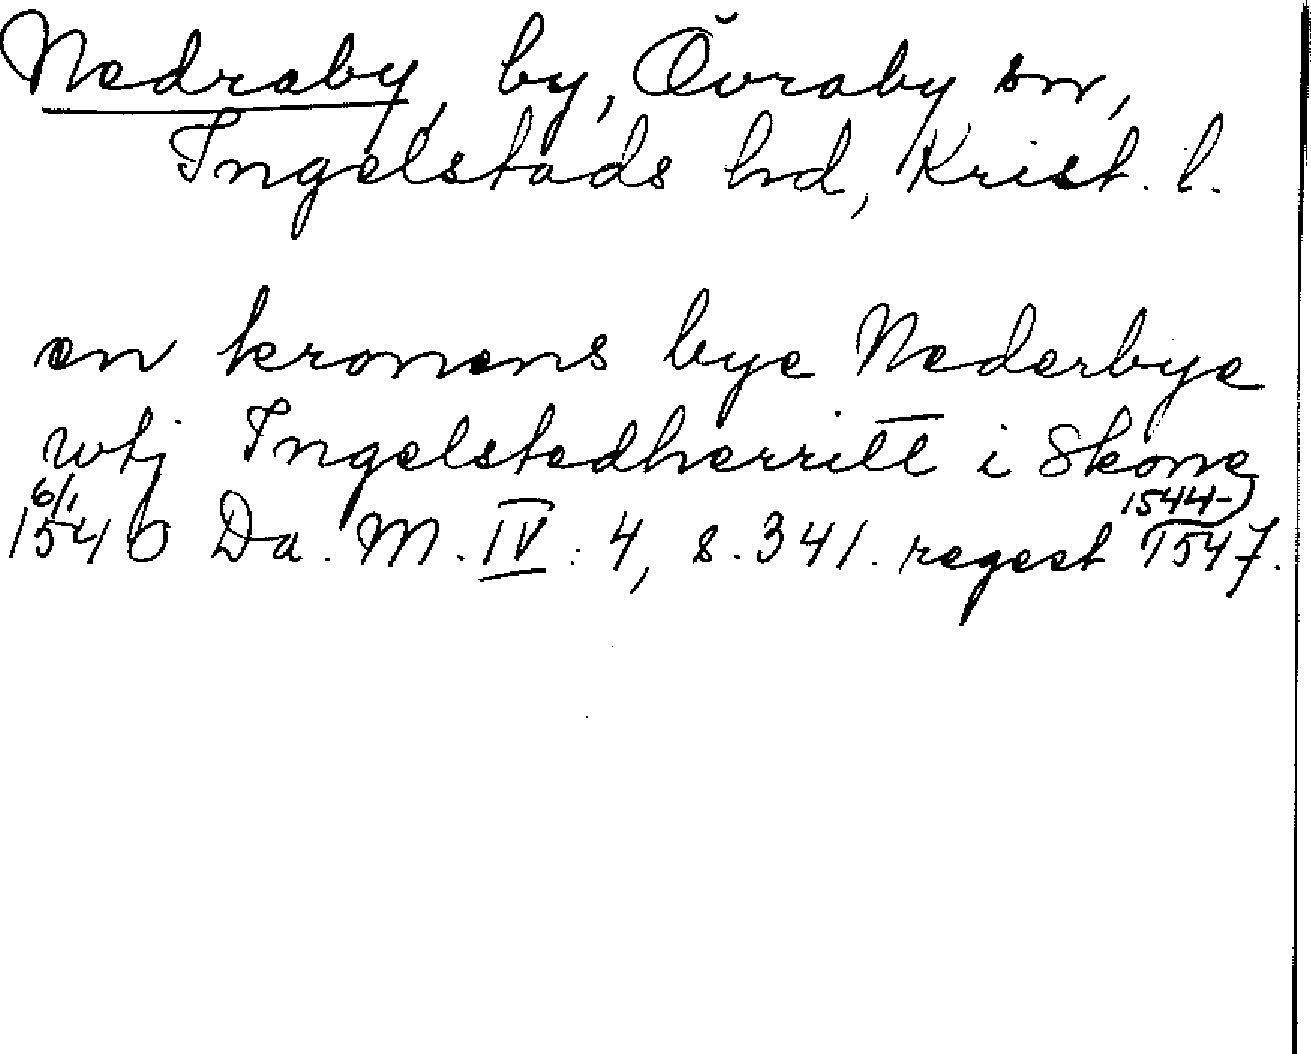 Nedraby, by, Övraby sn,
Ingelstads hd, Krist. l.
en kronens bye Nederbye
wtj Ingelstedherritt i Skone
6/1 1544-
1546 Da. M. IV. 4, s. 341. regest 1547.